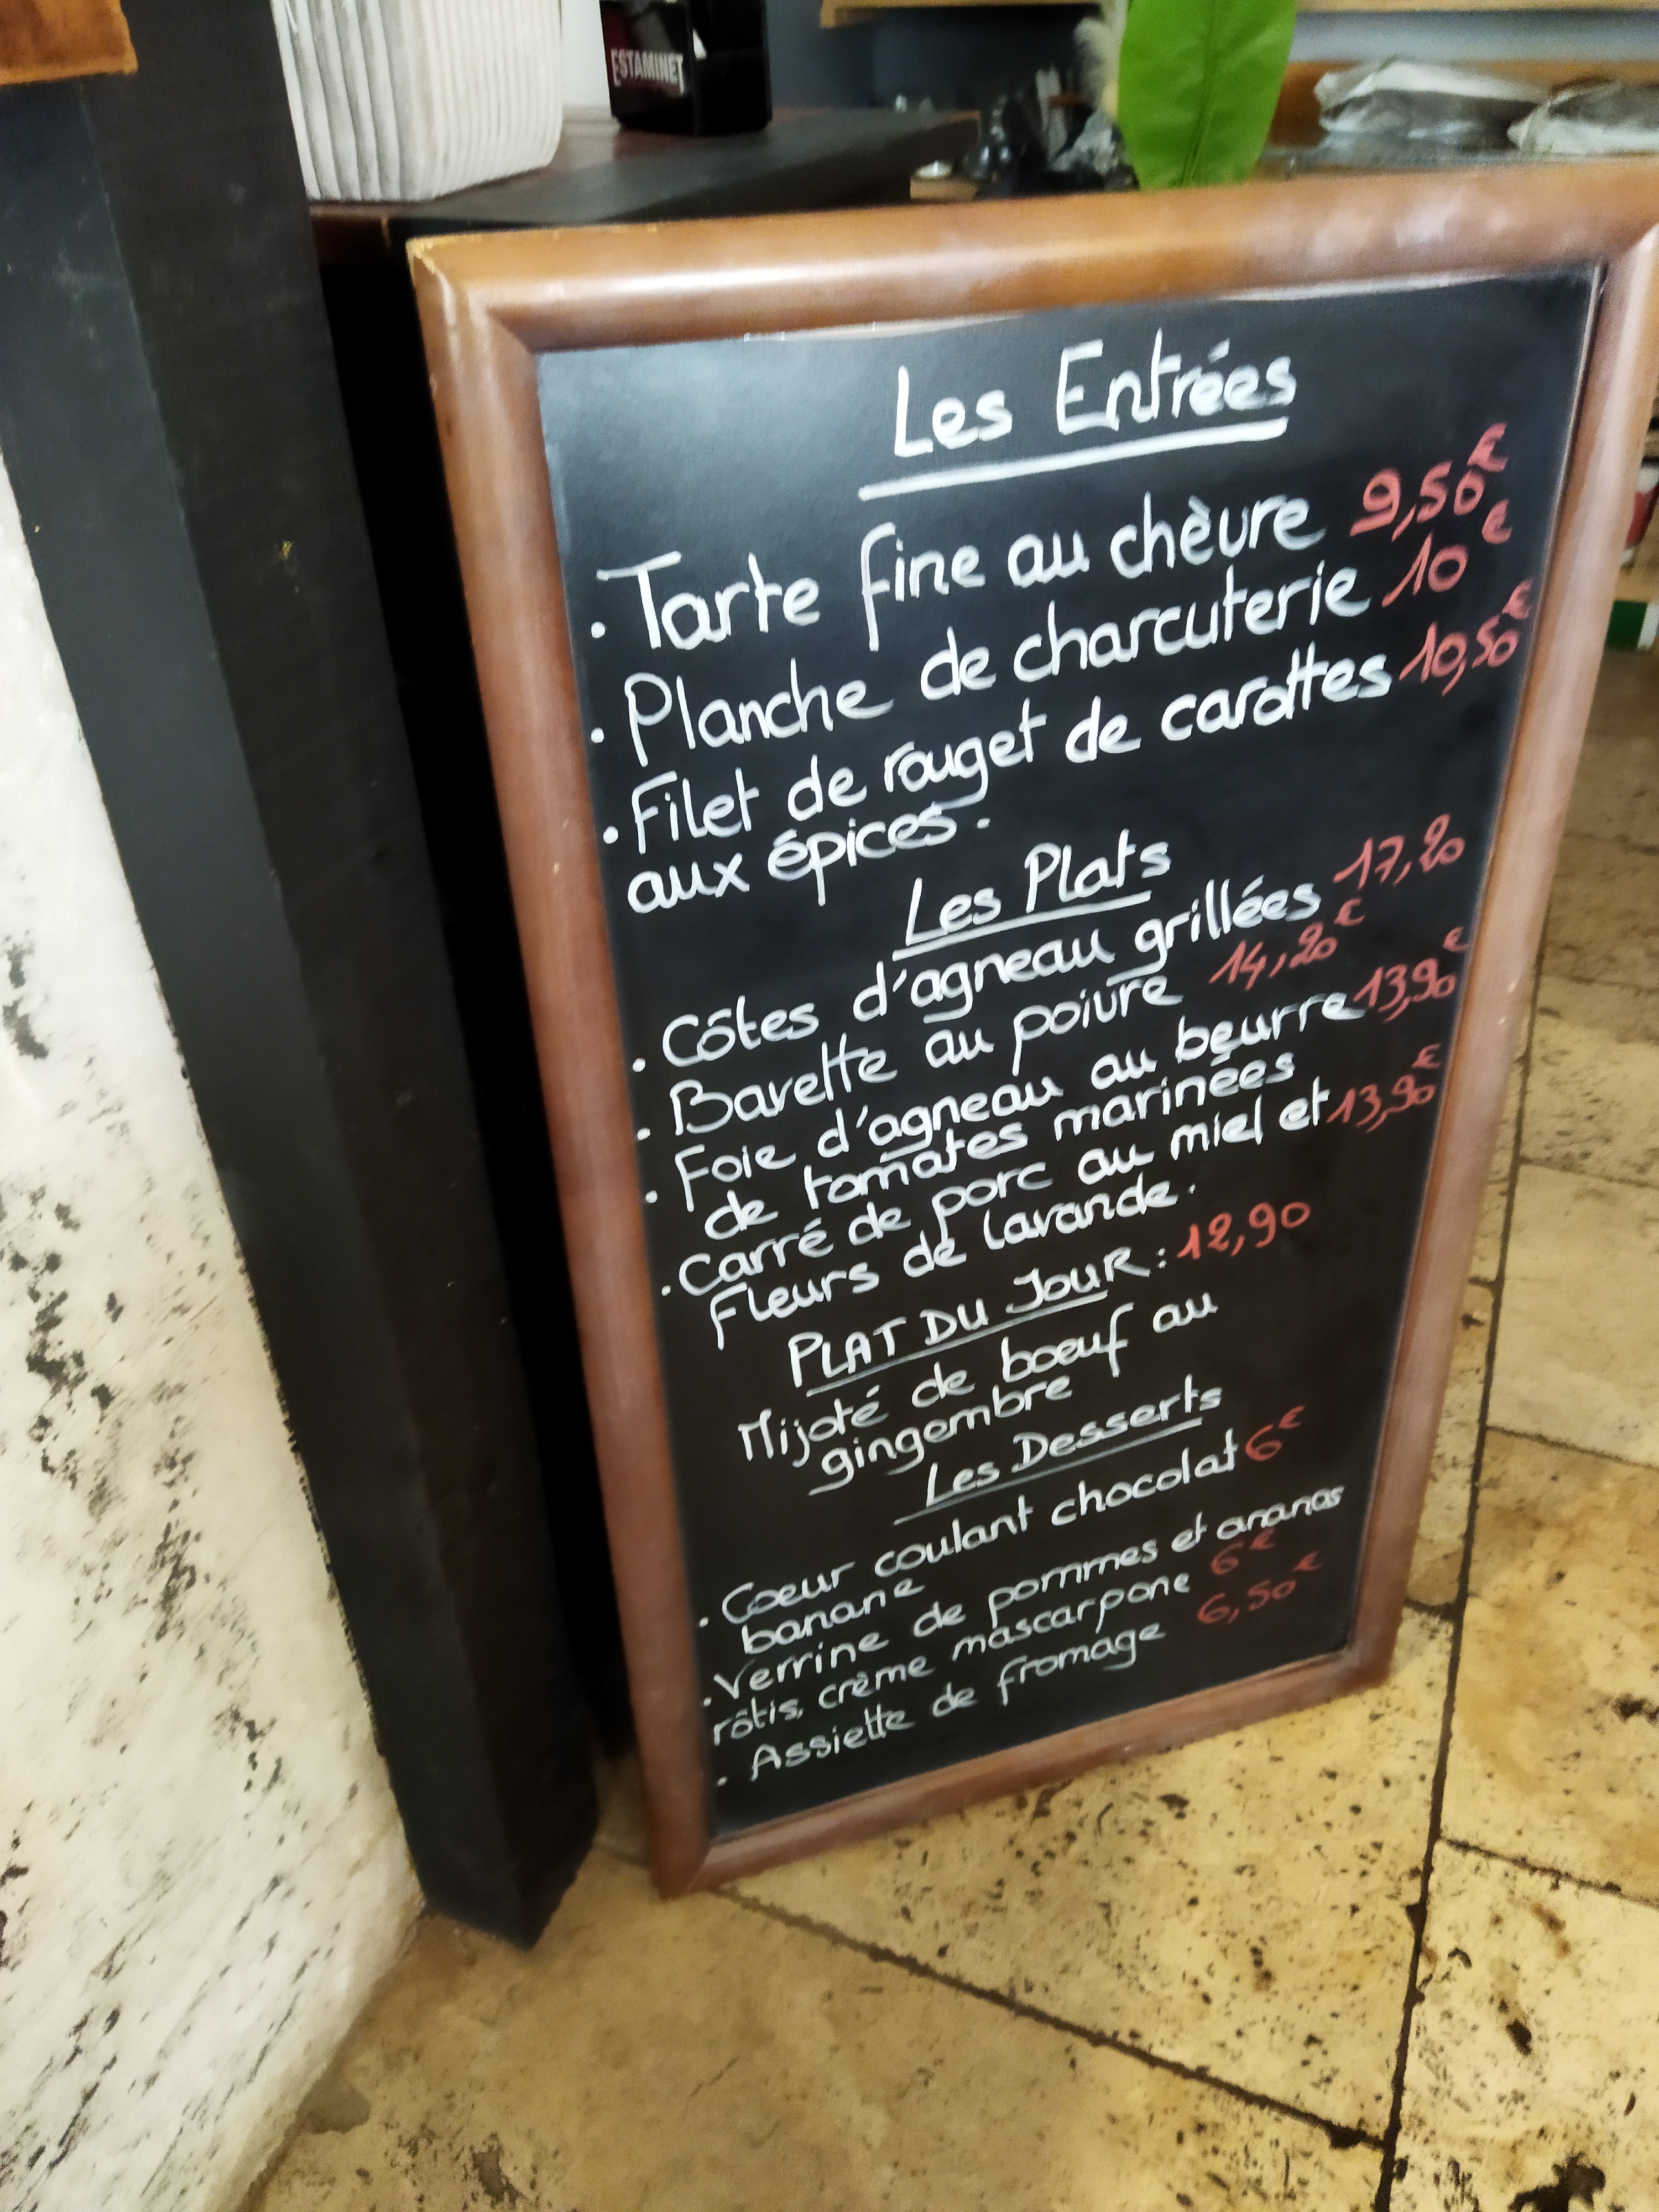 ESTAMINET
Les Entrées
. Tarte fine au chèvre 9,50€
. Planche de charcuterie 10€
. Filet de rouget de carottes 10,50€
aux épices.
Les Plats
. Côtes d'agneau grillées 17,20
. Bavette au poivre 14,20€
. Foie d'agneau au beurre 13,90€
de tomates marinées
. Carré de porc au miel et 13,90€
Fleurs de lavande.
PLAT DU JOUR : 12,90
Mijoté de boeuf au
gingembre
Les Desserts
. Coeur coulant chocolat 6€
banane
. Verrine de pommes et ananas
rôtis, crème mascarpone 6€
. Assiette de fromage 6,50€